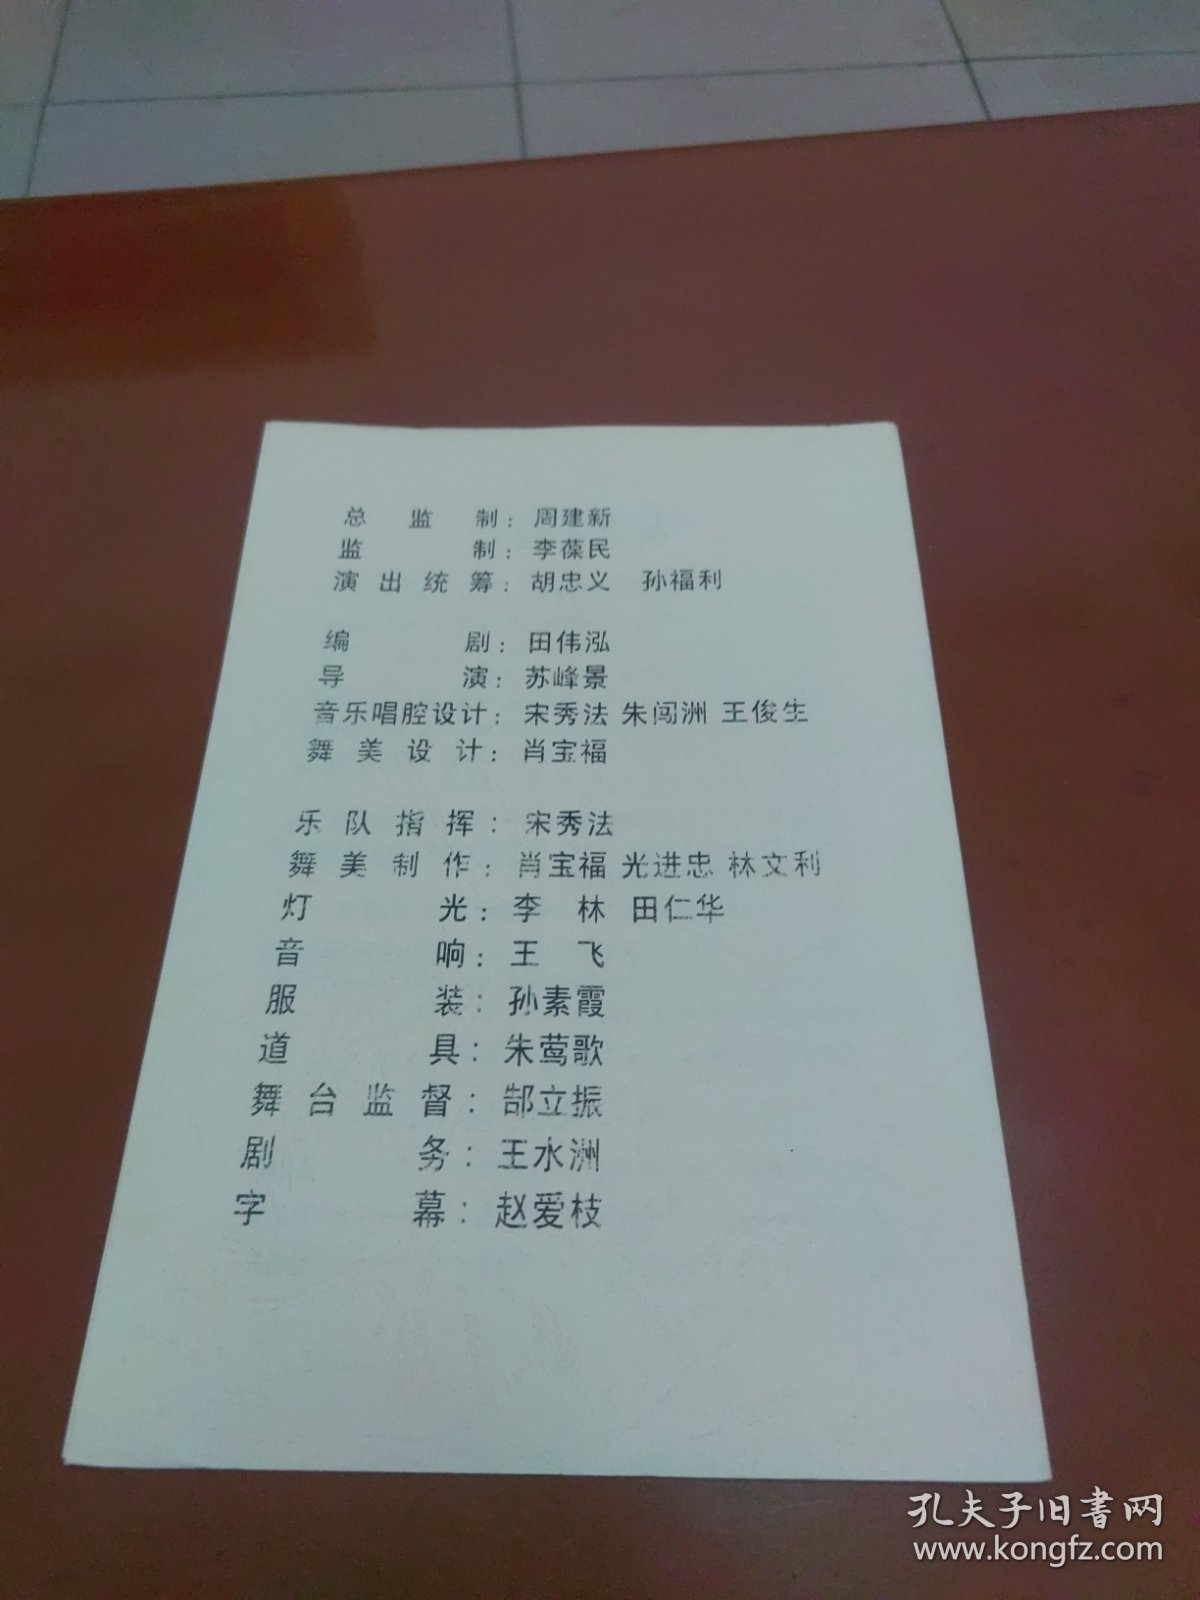 总监制：周建新
监制：李葆民
演出统筹：胡忠义 孙福利
编剧：田伟泓
导演：苏峰景
音乐唱腔设计：宋秀法 朱闯洲 王俊生
舞美设计：肖宝福
乐队指挥：宋秀法
舞美制作：肖宝福 光进忠 林文利
灯光：李林 田仁华
音响：王飞
服装：孙素霞
道具：朱莺歌
舞台监督：郜立振
剧务：王水洲
字幕：赵爱枝
孔夫子旧书网
www.kongfz.com